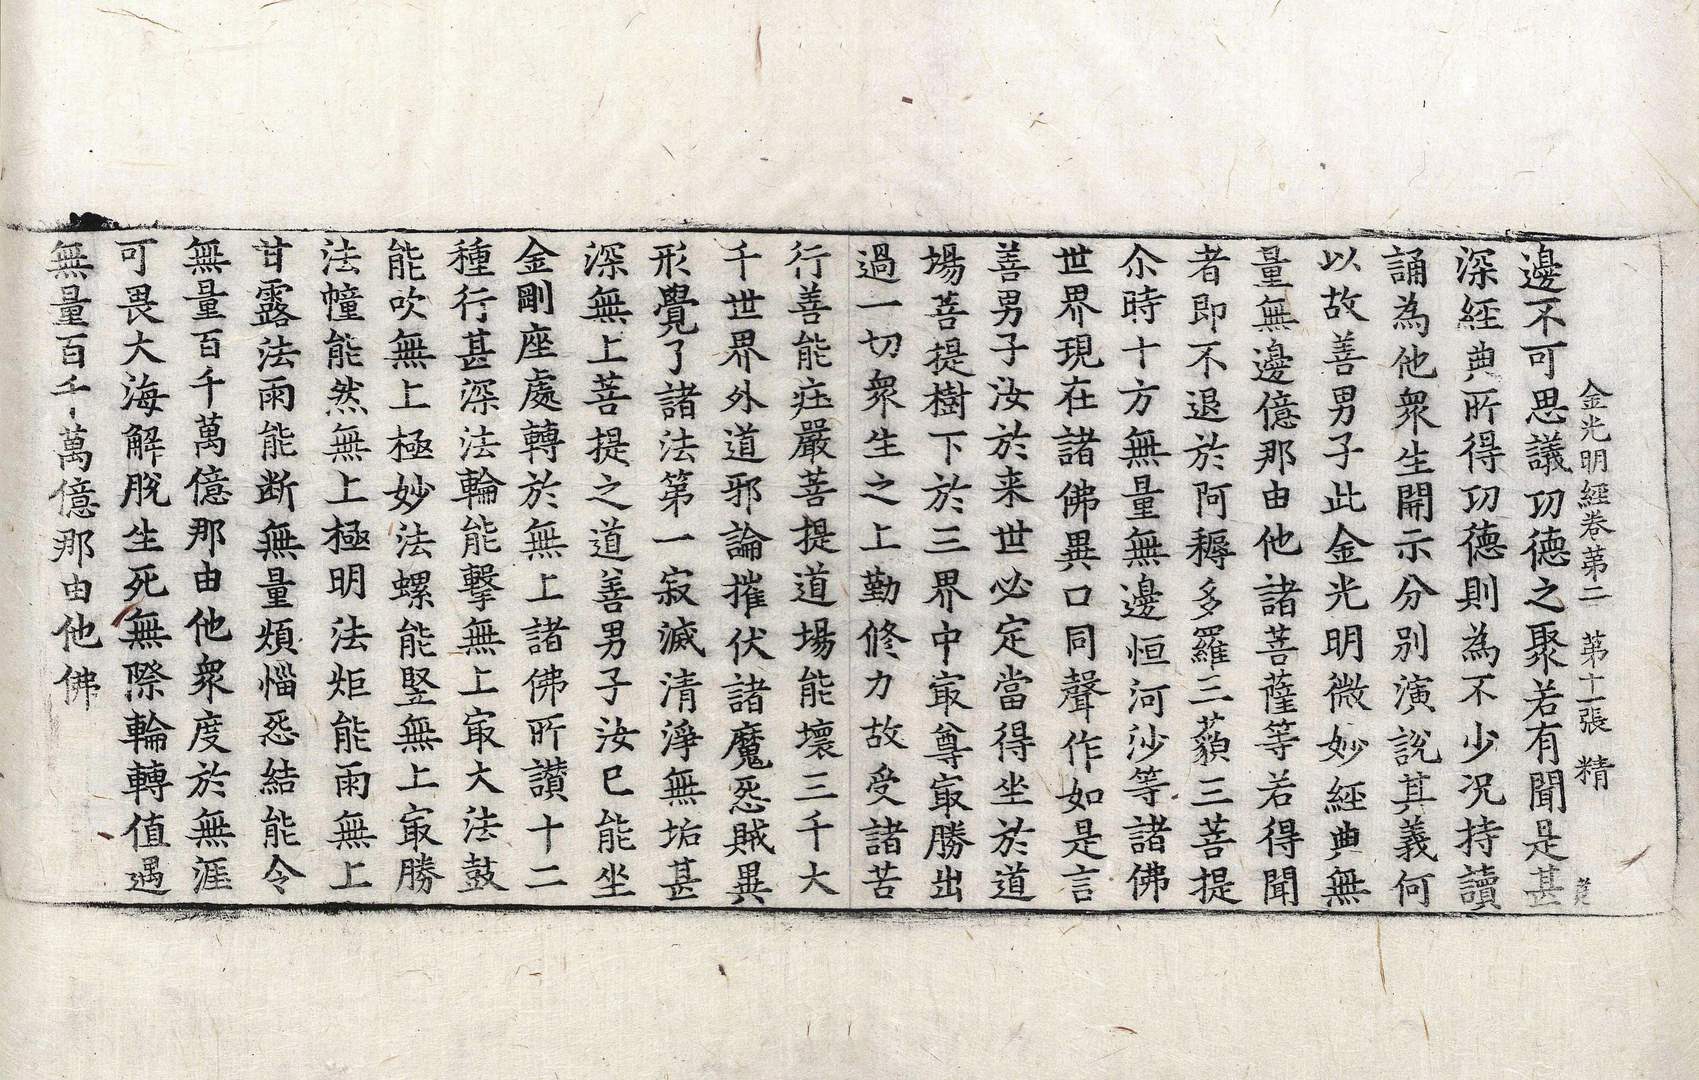 金光明經卷第二 第十一張 精
邊不可思議功德之聚若有聞是甚
深經典所得功德則為不少况持讀
誦為他衆生開示分别演說其義何
以故善男子此金光明微妙經典無
量無邊億那由他諸菩薩等若得聞
者即不退於阿耨多羅三藐三菩提
尒時十方無量無邊恒河沙等諸佛
世界現在諸佛異口同聲作如是言
善男子汝於来世必定當得坐於道
場菩提樹下於三界中㝡尊㝡勝出
過一切衆生之上勤修力故受諸苦
行善能庄嚴菩提道場能壞三千大
千世界外道邪論摧伏諸魔怨賊異
形覺了諸法第一寂滅清淨無垢甚
深無上菩提之道善男子汝已能坐
金剛座處轉於無上諸佛所讃十二
種行甚深法輪能擊無上㝡大法鼓
能吹無上極妙法螺能竪無上㝡勝
法幢能然無上極明法炬能雨無上
甘露法雨能断無量煩惱怨結能令
無量百千萬億那由他衆度於無涯
可畏大海解脫生死無際輪轉值遇
無量百千萬億那由他佛